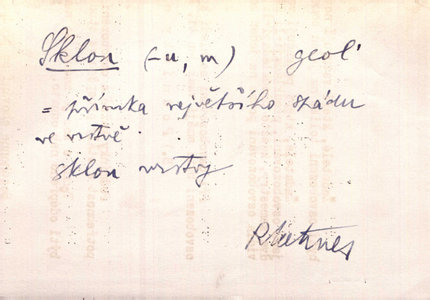 Sklon (-u, m) geol.
= přímka největšího spádu
ve vrstvě.
sklon vrstvy